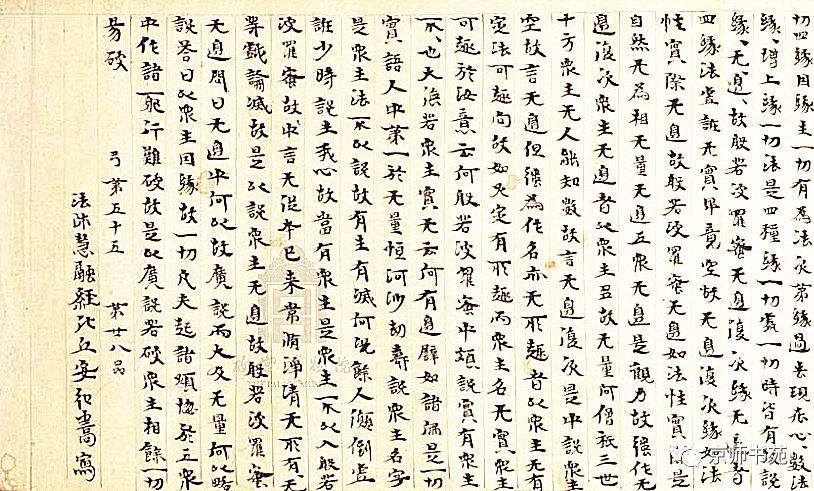 切四緣因緣主一切有為法次第緣過去現在心〻數法
緣〻增上緣一切法是四種緣一切處一切時皆有故說
緣〻无邊故般若波羅蜜无邊復次緣无邊者
四緣法虛誑无實畢竟空故无邊復次緣如法
性實際无邊故般若波羅蜜无邊如法性實際是
自然无為相无量无邊五眾无邊是觀力故強作无
邊復次眾生无邊者以眾生多故无量阿僧祇三世
十方眾生无人能知數故言无邊復次是中說眾生
空故言无邊但強為作名亦无所趣者以眾生无有
定法可趣向故如火定有所趣而眾生名无實眾生
可趣於汝意云何般若波羅蜜中頗說實有眾生
不〻也大德若眾生實无云何有邊譬如諸佛是一切
實語人中第一於无量恒河沙劫壽說眾生名字
是眾生法不以說故有生有滅何況餘人顛倒虛
誑少時說生我心故當有眾生是眾生不以入般若
波羅蜜故中言无從本已來常清淨清无所有〻无
等戲論滅故是以說眾生无邊故般若波羅蜜
无邊問曰无邊中何以故廣說而大及无量何以略
說答曰以眾生因緣故一切凡夫起諸煩惱於五眾
中作諸邪行難破故是以廣說若破眾生相餘一切
易破 弓第五十五 第廿八品
法師慧融經比丘安弘嵩寫
京师书苑